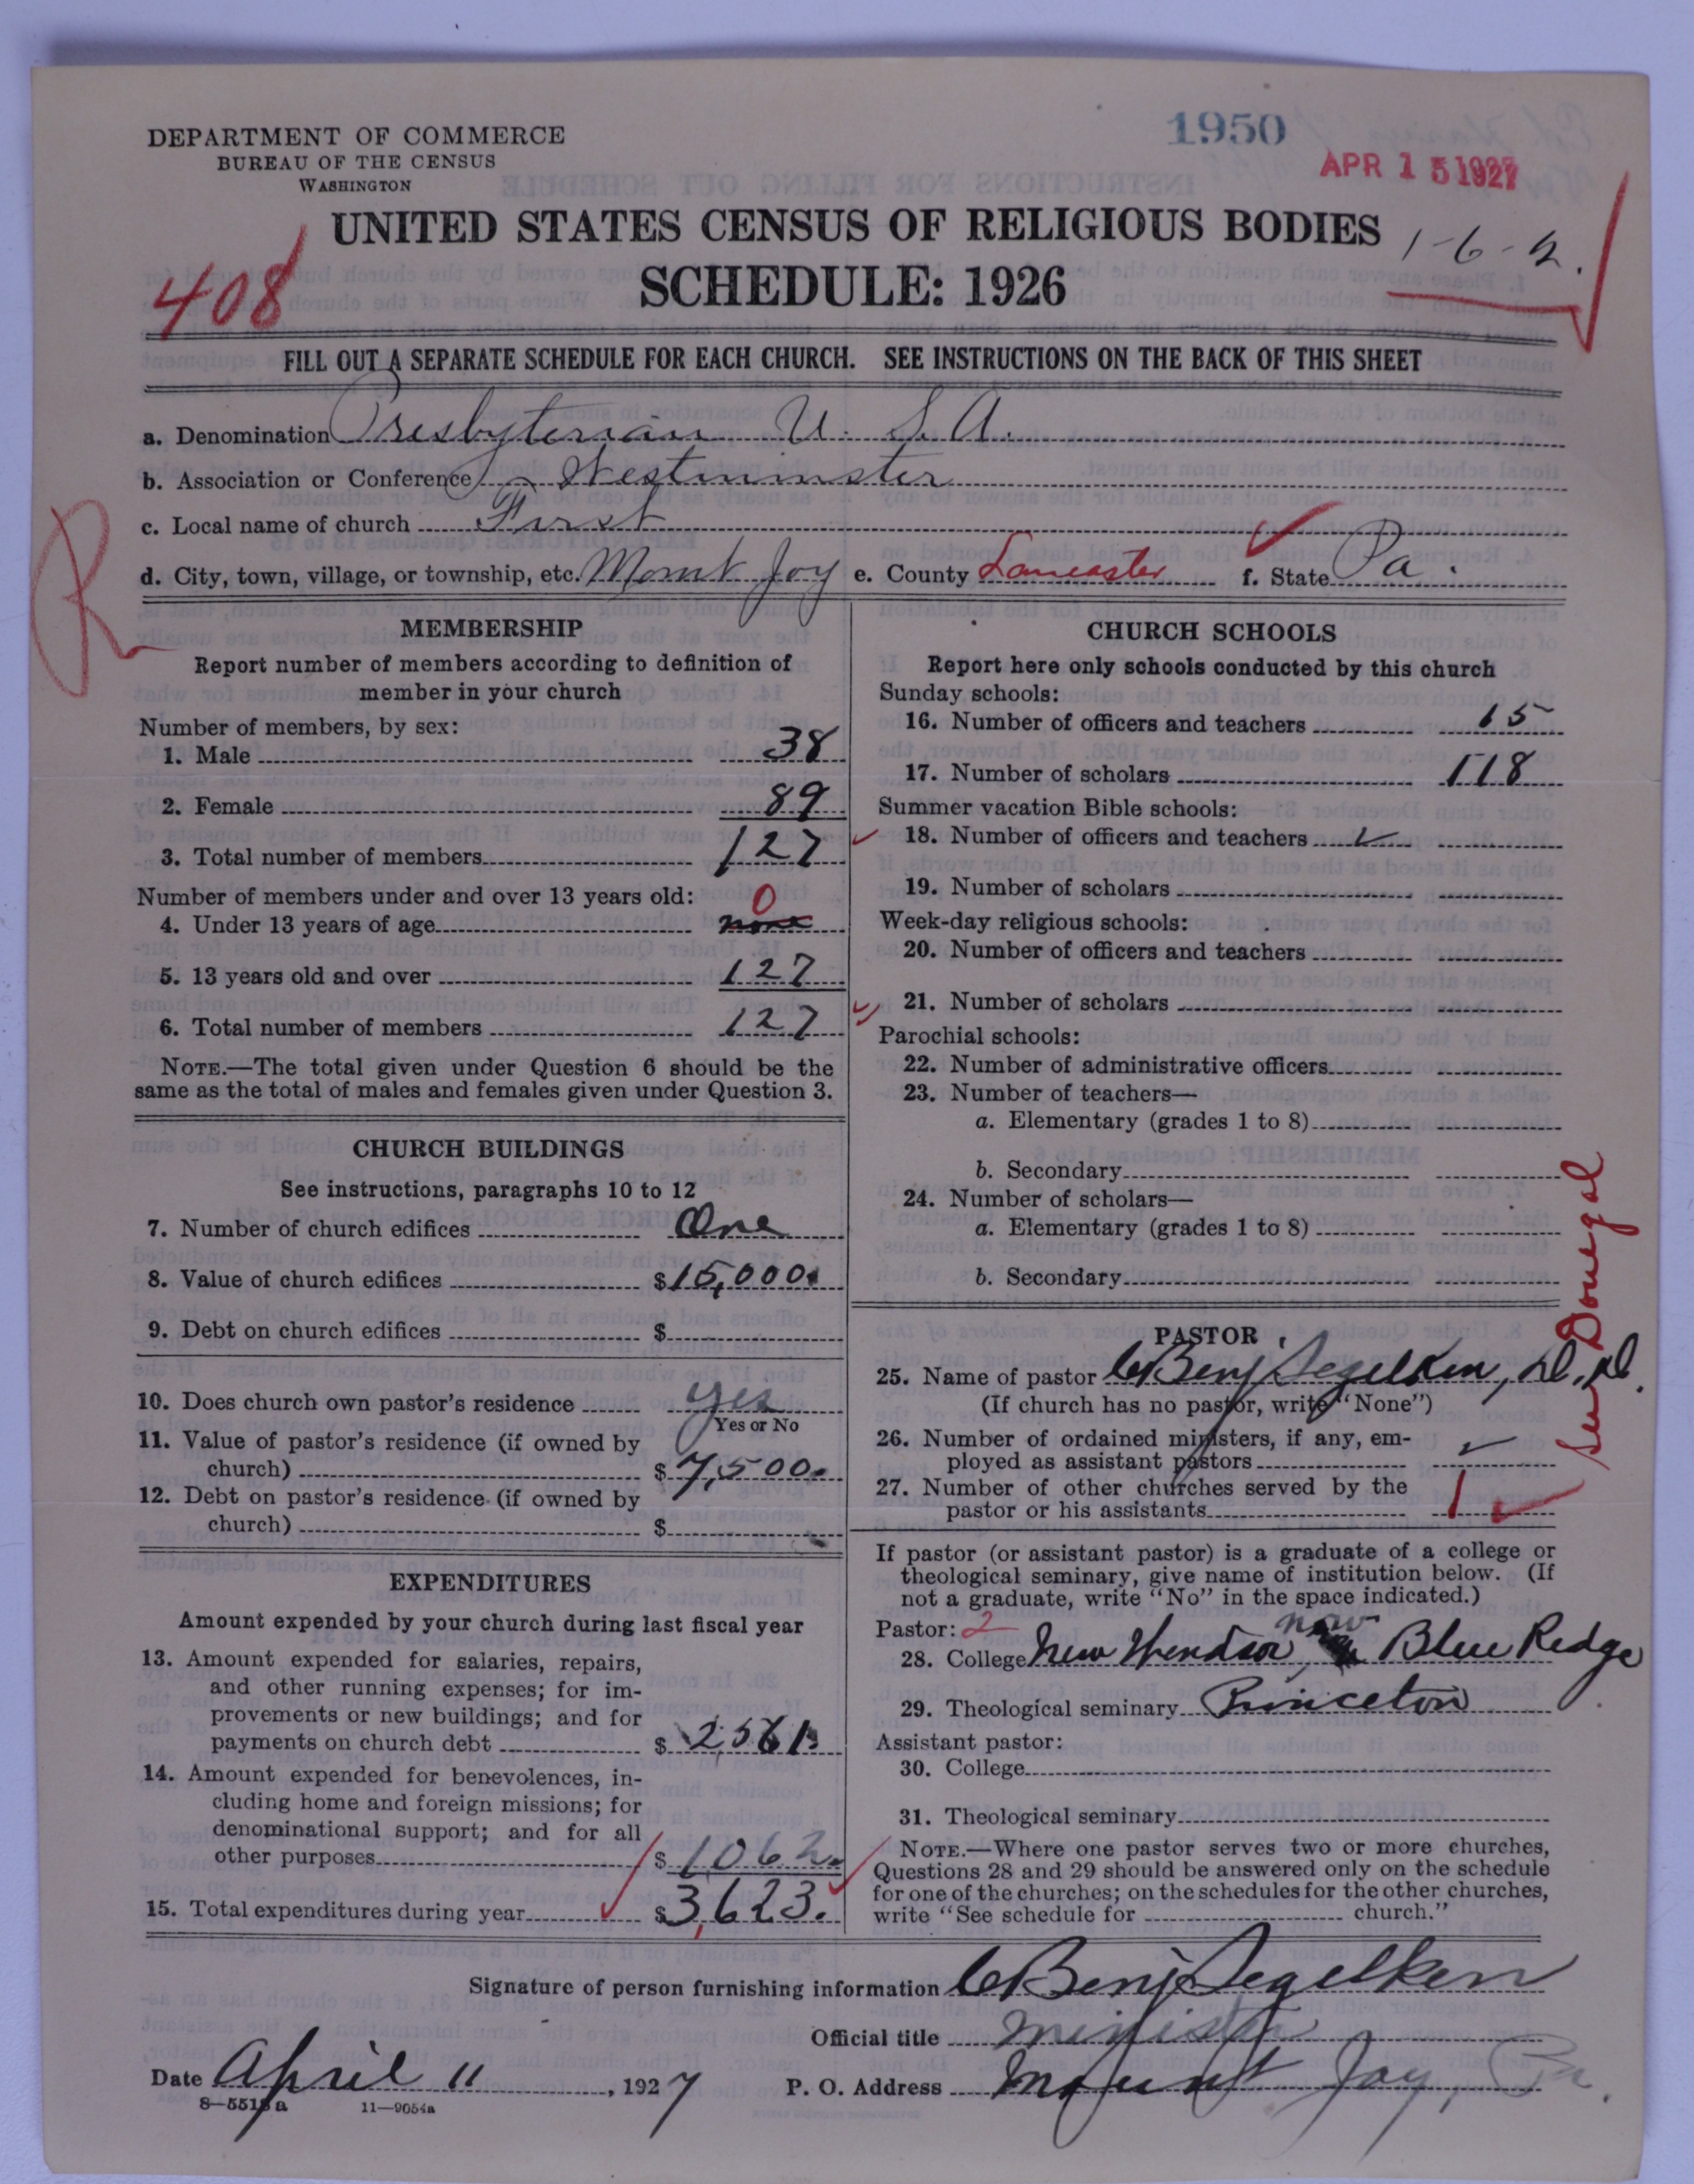 DEPARTMENT OF COMMERCE
BUREAU OF THE CENSUS
WASHINGTON
1950
APR 15 1927
UNITED STATES CENSUS OF RELIGIOUS BODIES
1-6-2.
408
SCHEDULE: 1926
FILL OUT A SEPARATE SCHEDULE FOR EACH CHURCH. SEE INSTRUCTIONS ON THE BACK OF THIS SHEET
a. Denomination Presbyterian U. S. A.
b. Association or Conference Westminster
c. Local name of church First
d. City, town, village, or township, etc. Mount Joy e. County Lancaster f. State Pa.
R
MEMBERSHIP
Report number of members according to definition of
member in your church
Number of members, by sex:
1. Male 38
2. Female 89
3. Total number of members 127
Number of members under and over 13 years old: 0
4. Under 13 years of age none
5. 13 years old and over 127
6. Total number of members 127
NOTE.—The total given under Question 6 should be the
same as the total of males and females given under Question 3.
CHURCH BUILDINGS
See instructions, paragraphs 10 to 12
7. Number of church edifices One
8. Value of church edifices $15,000.
9. Debt on church edifices $
10. Does church own pastor's residence yes
Yes or No
11. Value of pastor's residence (if owned by
church) $7,500.
12. Debt on pastor's residence (if owned by
church) $
EXPENDITURES
Amount expended by your church during last fiscal year
13. Amount expended for salaries, repairs,
and other running expenses; for im-
provements or new buildings; and for
payments on church debt $2561
14. Amount expended for benevolences, in-
cluding home and foreign missions; for
denominational support; and for all
other purposes $1062.
15. Total expenditures during year $3,623.
CHURCH SCHOOLS
Report here only schools conducted by this church
Sunday schools:
16. Number of officers and teachers 15
17. Number of scholars 118
Summer vacation Bible schools:
18. Number of officers and teachers
19. Number of scholars
Week-day religious schools:
20. Number of officers and teachers
21. Number of scholars
Parochial schools:
22. Number of administrative officers
23. Number of teachers—
a. Elementary (grades 1 to 8)
b. Secondary
24. Number of scholars—
a. Elementary (grades 1 to 8)
b. Secondary
PASTOR
25. Name of pastor C Benj Segelken, D. D.
(If church has no pastor, write "None")
26. Number of ordained ministers, if any, em-
ployed as assistant pastors
27. Number of other churches served by the
pastor or his assistants 1
See Donegal
If pastor (or assistant pastor) is a graduate of a college or
theological seminary, give name of institution below. (If
not a graduate, write "No" in the space indicated.)
Pastor: 2
28. College New Windsor, now Blue Ridge
29. Theological seminary Princeton
Assistant pastor:
30. College
31. Theological seminary
NOTE.—Where one pastor serves two or more churches,
Questions 28 and 29 should be answered only on the schedule
for one of the churches; on the schedules for the other churches,
write "See schedule for church."
Signature of person furnishing information C Benj Segelken
Official title Minister
Date April 11, 1927 P. O. Address Mount Joy, Pa.
8—5518a 11—9054a